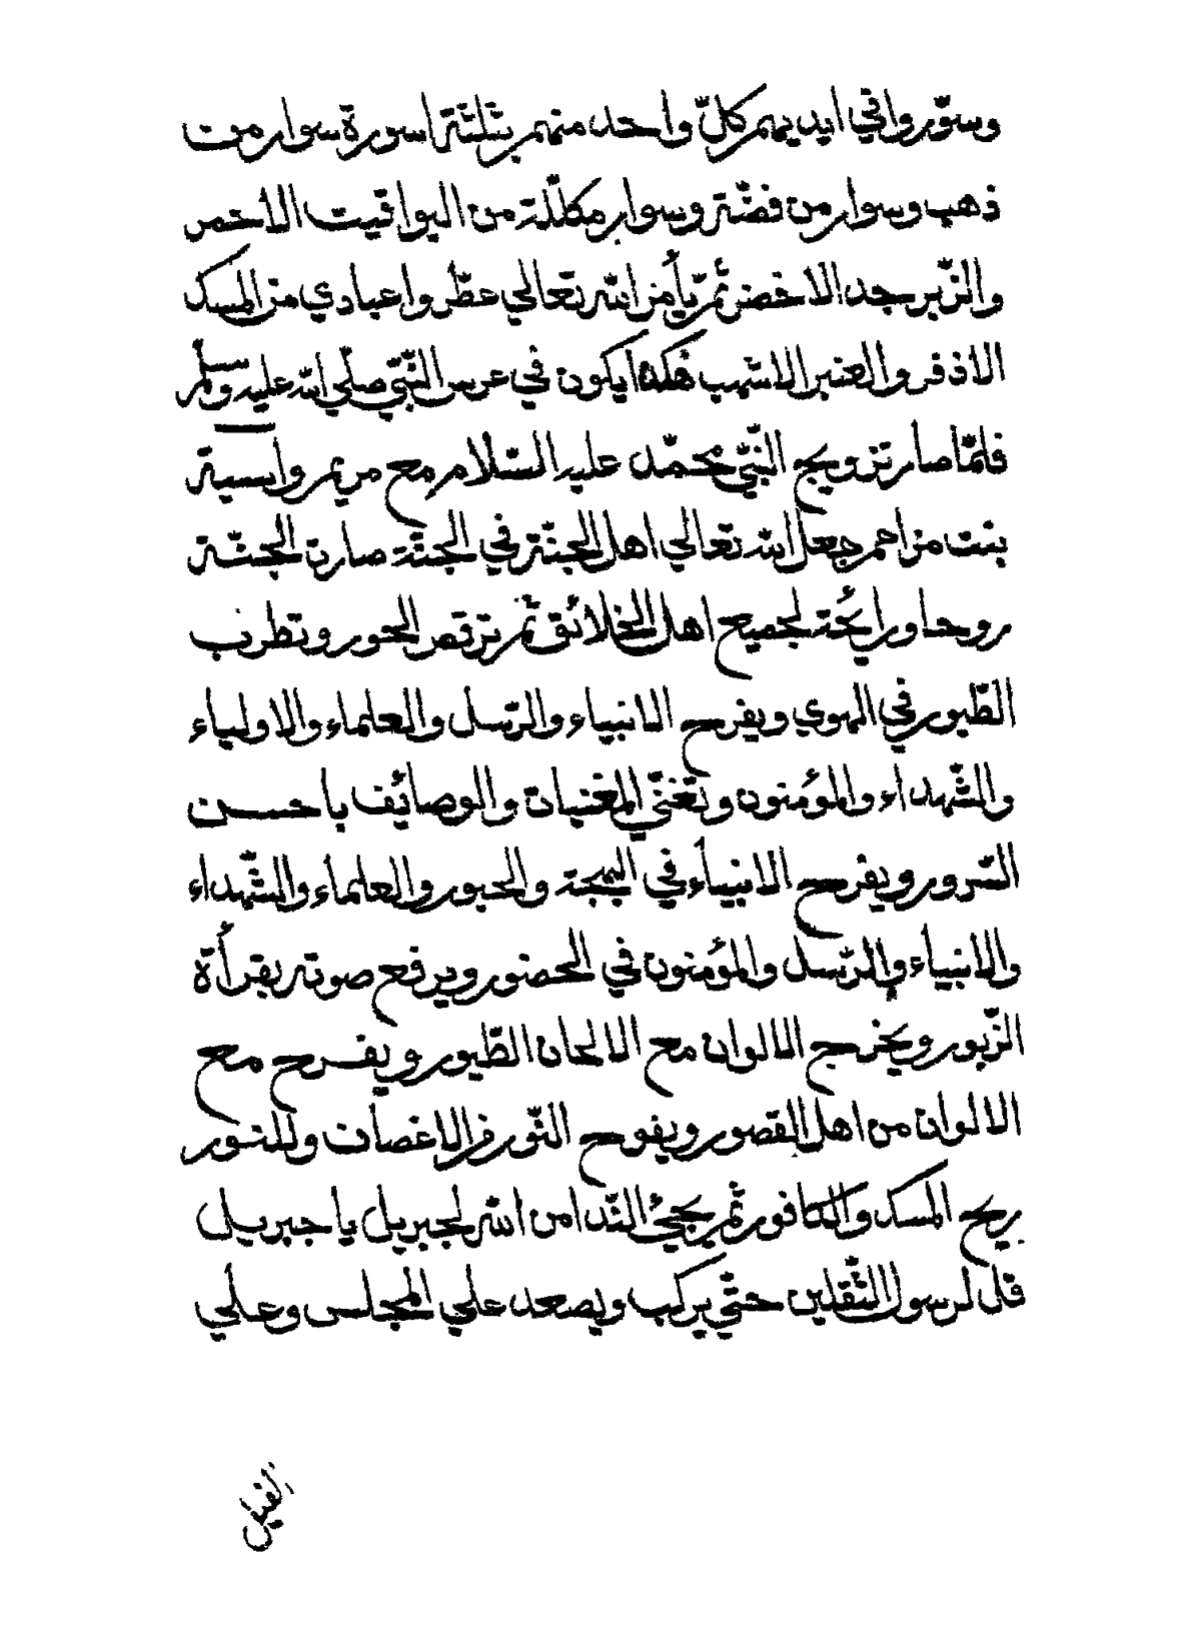 وسوّروا في ايديهم كلّ واحد منهم بثلثة اسورة سوار من
ذهب وسوار من فضّة وسوار مكلّلة من اليواقيت الاحمر
والزّبرجد الاخضر ثمّ يأمر اللّه تعالي عطّروا عبادي من المسك
الاذفر والعنبر الاشهب هكذا يكون في عرس النّبيّ صلّي اللّه عليه وسلّم
فلمّا صار تزويج النّبيّ محمّد عليه السّلام مع مريم وآسية
بنت مزاحم جعل اللّه تعالي اهل الجنّة في الجنّة صارت الجنّة
روحا ورايحة لجميع اهل الخلائق ثمّ ترقص الحور وتطرب
الطّيور في الهوي ويفرح الانبياء والرّسل والعلماء والاولياء
والشّهداء والمؤمنون وتغنّي المغنيات والوصائف باحسن
السّرور ويفرح الانبياء في البهجة والحبور والعلماء والشّهداء
والانبياء والرّسل والمؤمنون في الحضور ويرفع صوته بقرأة
الزّبور ويخرج الالوان مع الالحان الطّيور ويفرح مع
الالوان من اهل القصور ويفوح النّور من الاغصان وللنور
ريح المسك والكافور ثمّ يجيئ النّدا من اللّه لجبريل يا جبريل
قل لرسول الثّقلين حتّي يركب ويصعد علي المجلس وعلي